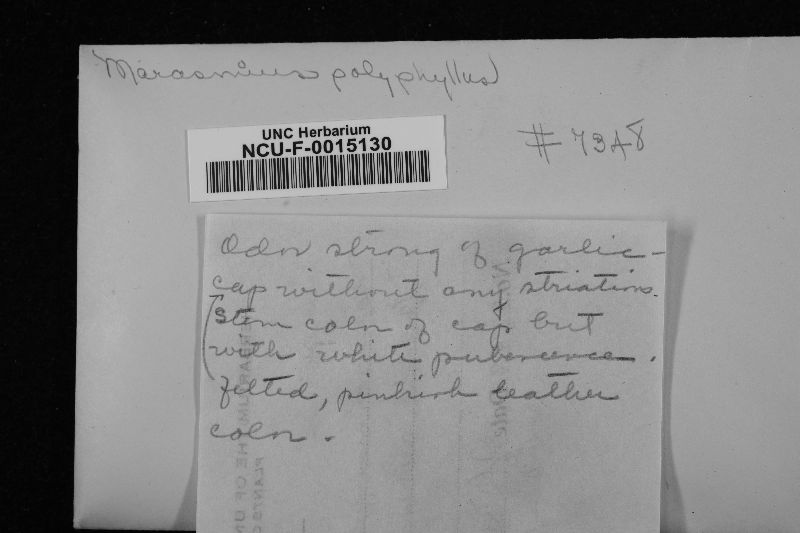 Marasmius polyphyllus
UNC Herbarium
NCU-F-0015130
# 7348
Odor strong of garlic -
cap without any striations.
Stem color of cap but
with white pubescence.
felted, pinkish leather
color.